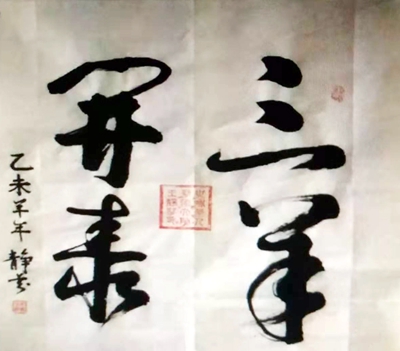 三羊
開泰
乙未羊年 静芳